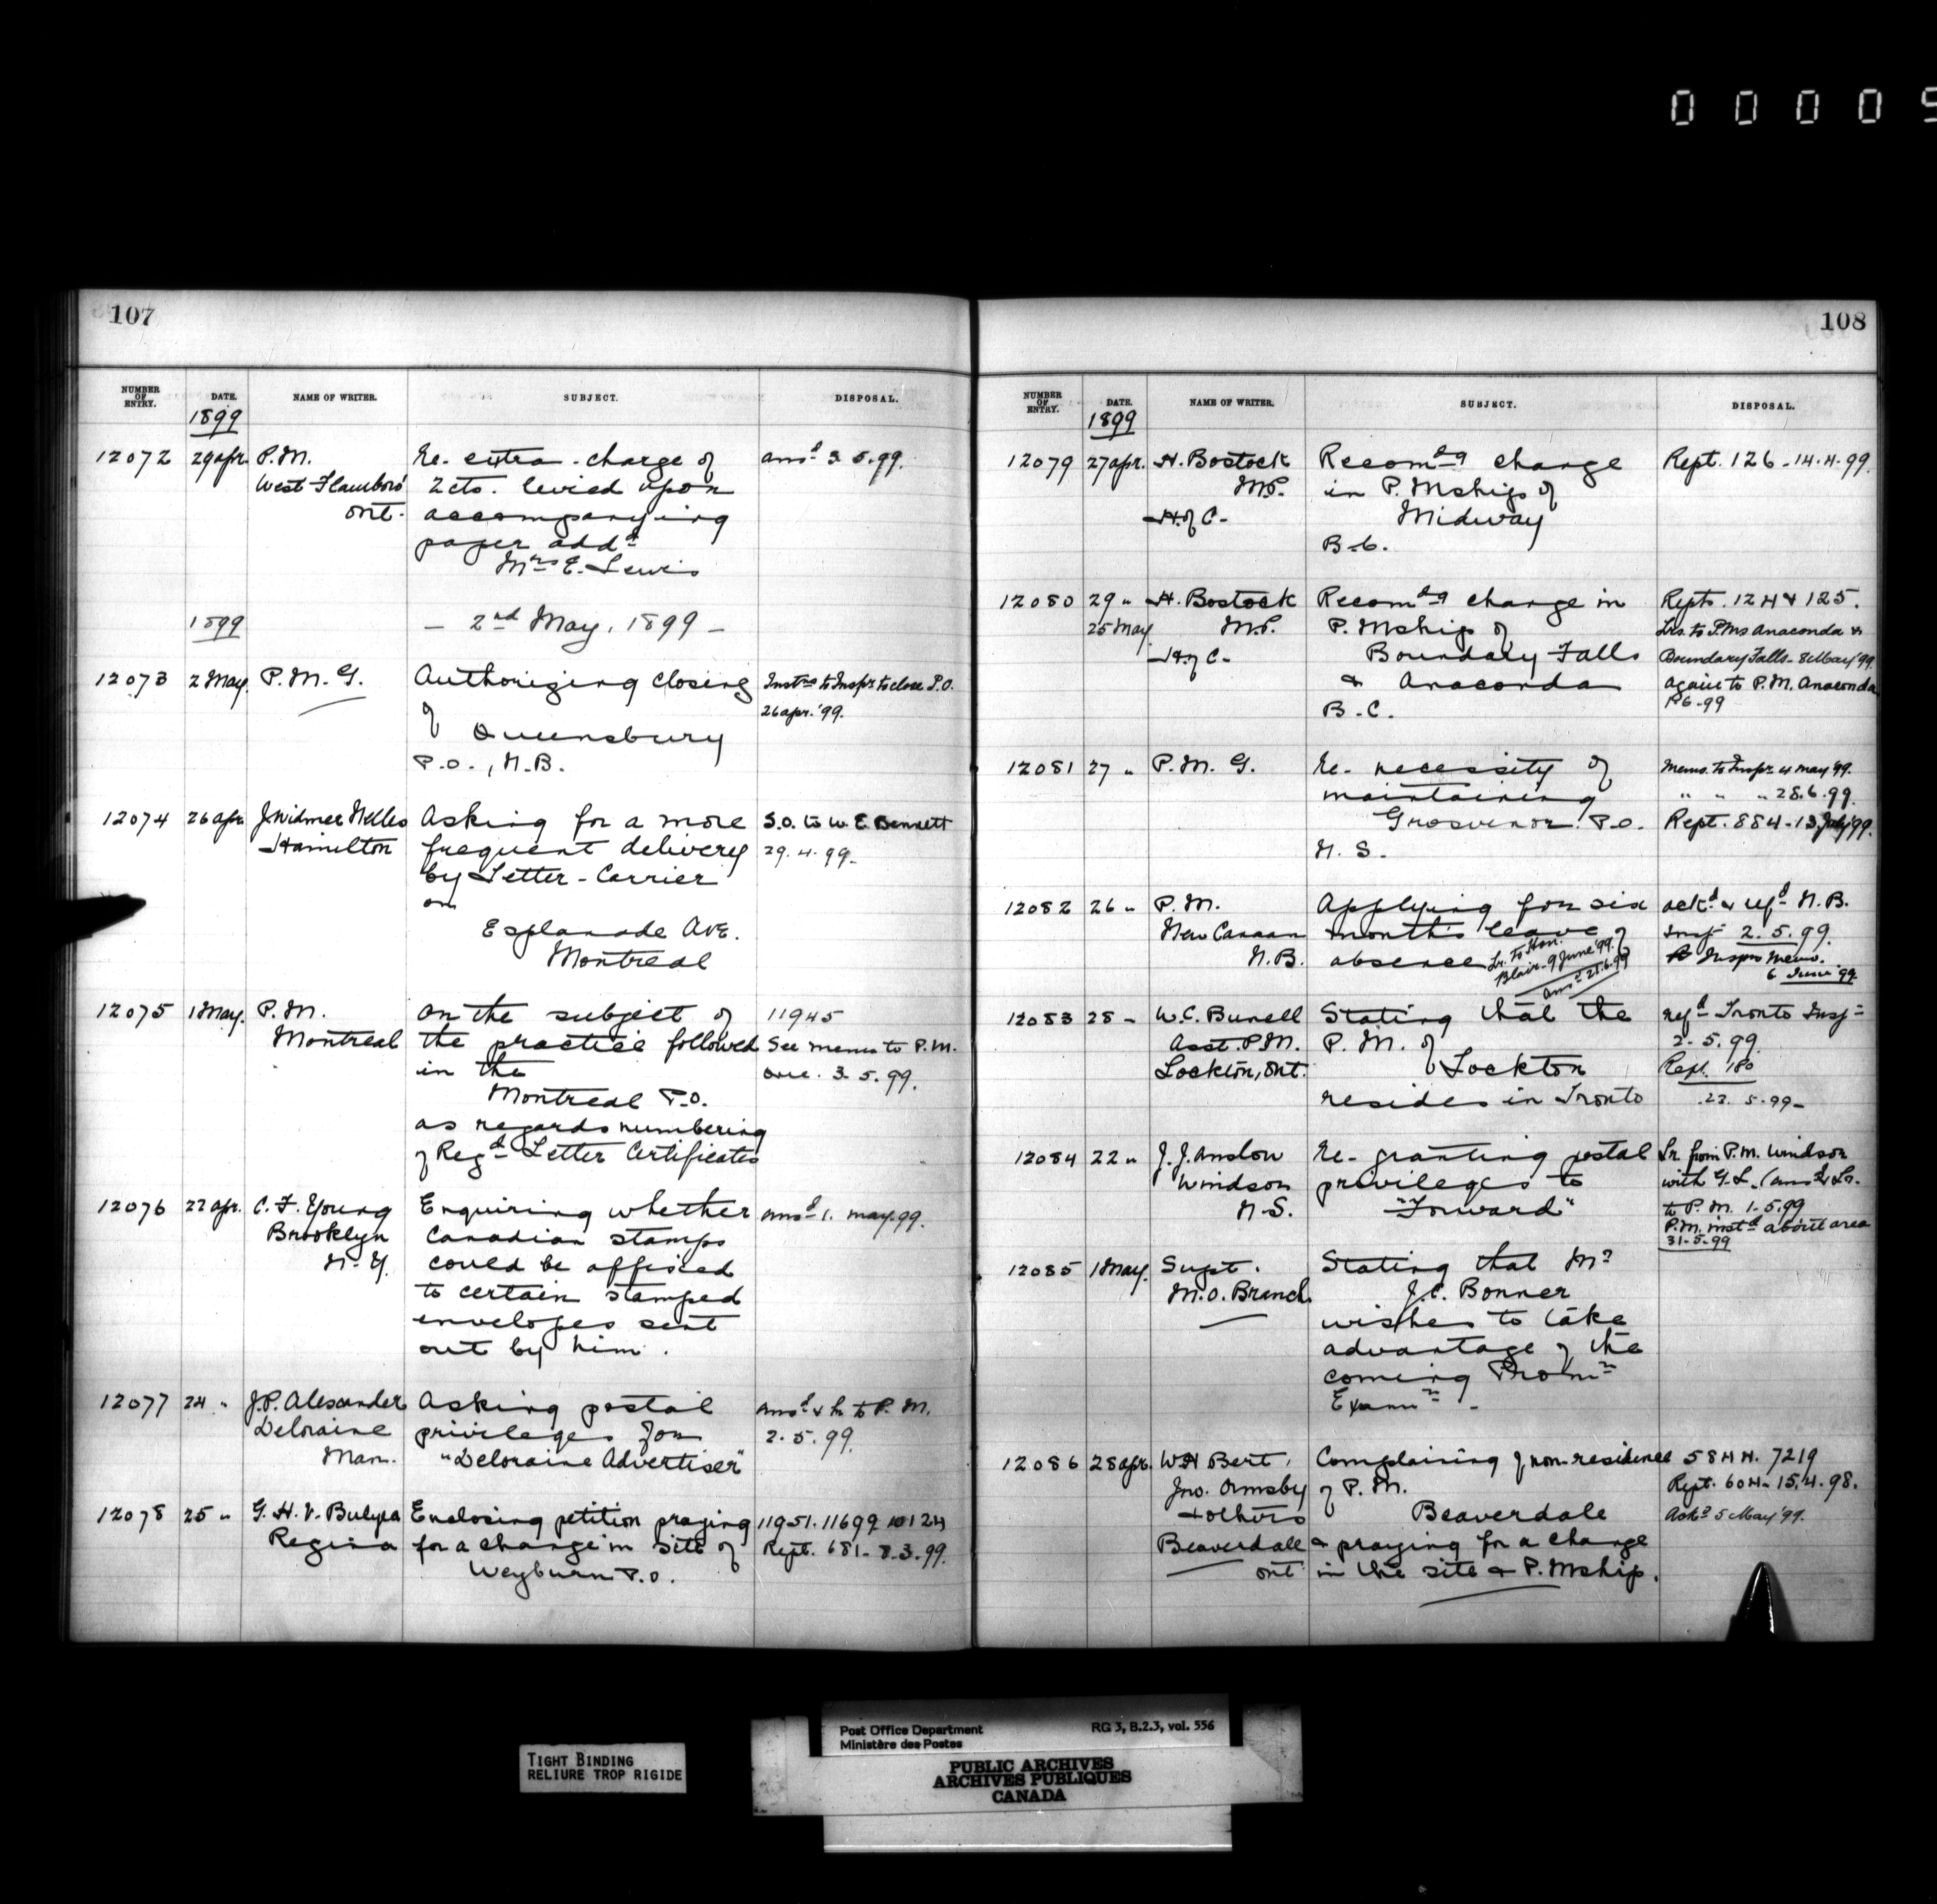 0 0 0 0 5
107
NUMBER OF ENTRY. DATE. NAME OF WRITER. SUBJECT. DISPOSAL.
1899
12072 29 Apr. P.M. Re- extra-charge of Ansd 3.5.99.
West Flamboro' 2 cts. levied upon
Ont. accompanying
paper addd
Mrs E. Lewis
1899 — 2nd May, 1899 —
12073 2 May P.M.G. Authorizing closing Instns to Inspr to close P.O.
of 26 Apr. '99.
Queensbury
P.O., N.B.
12074 26 Apr J. Widmer Nelles Asking for a more S.O. to W. E. Bennett
Hamilton frequent delivery 29.4.99.
by Letter-Carrier
on
Esplanade Ave.
Montreal
12075 1 May. P.M. On the subject of 11945
Montreal the practice followed See memo to P.M.
in the 3.5.99.
Montreal P.O.
as regards numbering
of Regd Letter Certificates
12076 22 Apr. C. F. Young Enquiring whether Ansd 1. May 99.
Brooklyn Canadian stamps
N.Y. could be affixed
to certain stamped
envelopes sent
out by him.
12077 24 " J.P. Alexander Asking postal Ansd & lr to P.M.
Deloraine privileges for 2.5.99.
Man. "Deloraine Advertiser"
12078 25 " G. H. V. Bulyea Enclosing petition praying 11951. 11699 10124
Regina for a change in site of Rept. 681 - 8.3.99.
Weyburn P.O.
108
NUMBER OF ENTRY. DATE. NAME OF WRITER. SUBJECT. DISPOSAL.
1899
12079 27 Apr. H. Bostock Recomdg change Rept. 126 - 14.4.99.
M.P. in P. Mships of
H. of C. Midway
B.C.
12080 29 " H. Bostock Recomdg change in Repts. 124 & 125.
25 May M.P. P. Mship of Lrs. to P.Ms Anaconda &
H. of C. Boundary Falls Boundary Falls - 8 May '99
& Anaconda again to P.M. Anaconda
B.C. 1.6.99
12081 27 " P.M.G. Re- necessity of Memo. to Inspr 4 May '99.
maintaining " " " 28.6.99.
Grosvenor P.O. Rept. 884 - 13 July '99.
N.S.
12082 26 " P.M. Applying for six Ackd & refd N.B.
New Canaan months leave of Insp 2.5.99.
N.B. absence Lr. to Hon. Inspr's Memo.
Blair - 9 June '99. 6 June '99
Ansd 21.6.99
12083 28 " W.C. Bunell Stating that the refd Tronto Insp
Asst. P.M. P.M. of 2.5.99.
Lockton, Ont. Lockton Rept. 180
resides in Tronto 23.5.99-
12084 22 " J.J. Anslow Re- granting postal Lr. from P.M. Windsor
Windsor privileges to with G.L. (Ansd & Lr.
N.S. "Forward" to P.M. 1.5.99
P.M. instd about area
31-5-99
12085 1 May. Supt. Stating that Mr
M.O. Branch J.C. Bonner
wishes to take
advantage of the
coming Promn
Examn -
12086 28 Apr. W H Bert, Complaining of non-residence 5844. 7219
Jno. Ormsby of P.M. Rept. 604 - 15.4.98.
& others Beaverdale Ackd 5 May '99.
Beaverdale & praying for a change
Ont in the site & P. Mship.
TIGHT BINDING
RELIURE TROP RIGIDE
Post Office Department RG 3, B.2.3, vol. 556
Ministère des Postes
PUBLIC ARCHIVES
ARCHIVES PUBLIQUES
CANADA